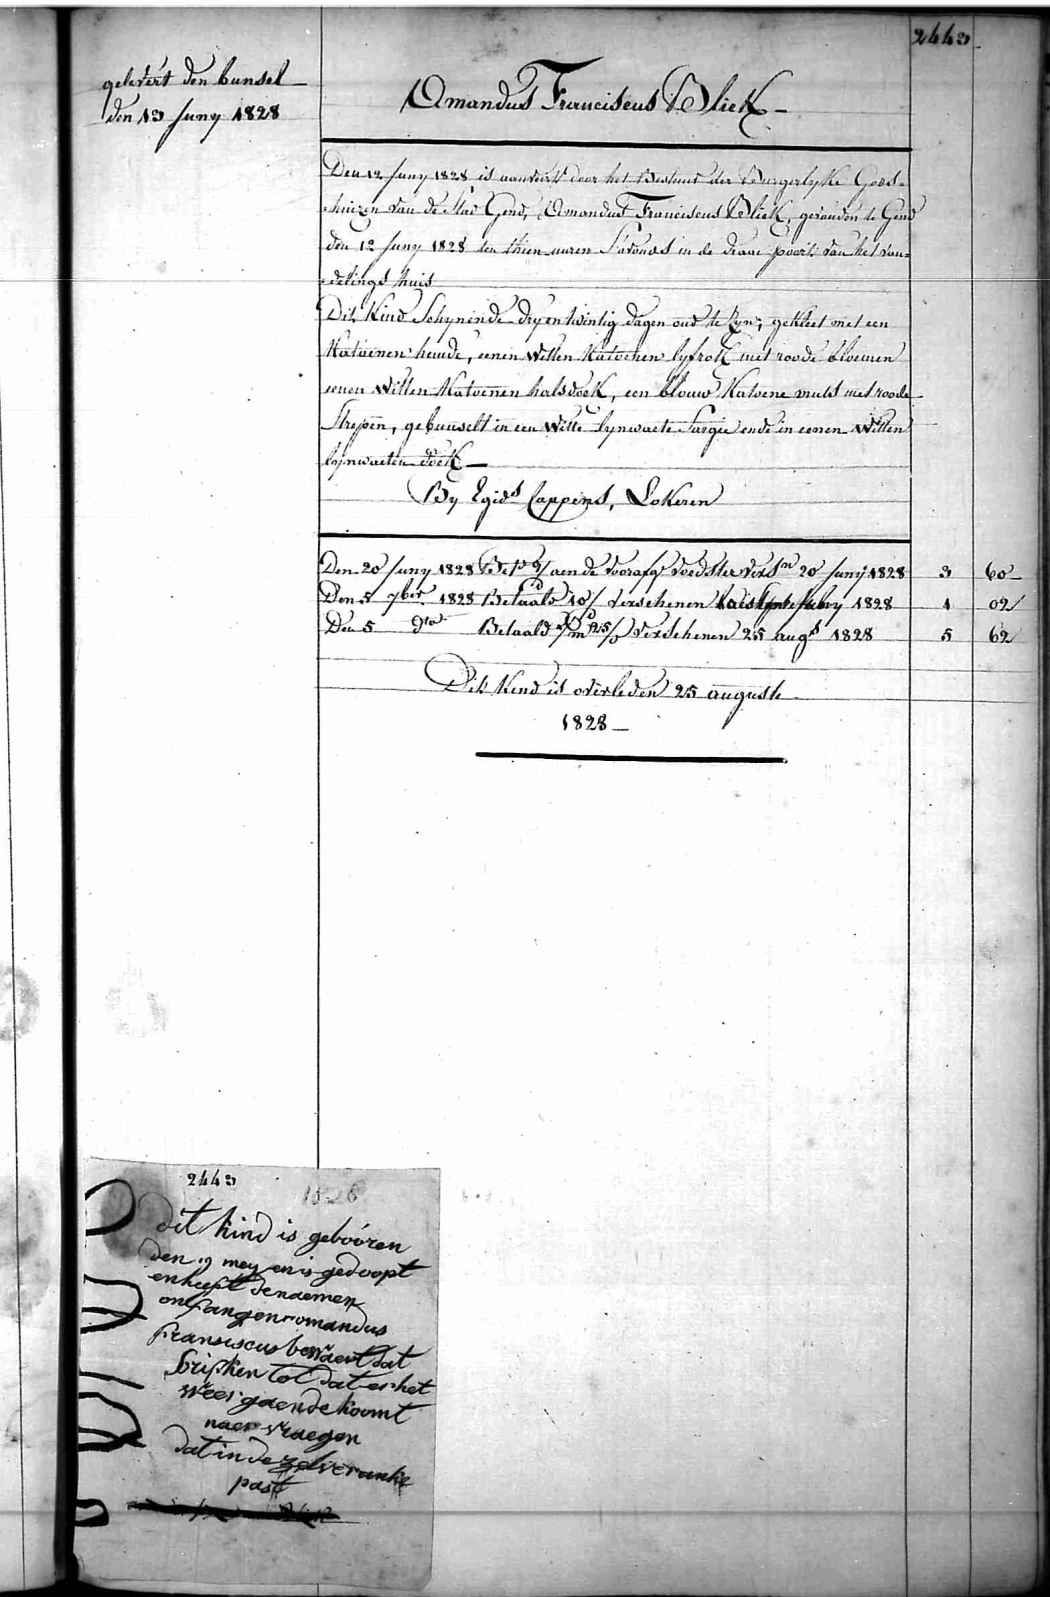 2443
gelevert den bunsel
den 13 Juny 1828
Omandus Franciscus Bliek
Den 12 Juny 1828 is aanveirt door het Bestuur der Burgerlyke Gods-
huizen van de Stad Gend, Omandus Franciscus Bliek, gevonden te Gend
den 12 Juny 1828 ten thien uren S'avonds in de draai poort van het von-
delings huis
Dit Kind Schynende dryentwintig dagen oud te zyn, gekleet met een
Katoenen hemde, eenen witten Katoenen lyfrok met roode bloemen
eenen witten Katoenen halsdoek, een blouw Katoene muts met roode
Strepen, gebunselt in een witte lynwaete Sargie ende in eenen witten
lynwaeten doek
By Egid.s Cappens, Lokeren
Den 20 Juny 1828 aen de voorafg. voedster vers.n 20 Junij 1828 3 60
Den 5 7ber 1828 Betaald 10/ verschenen 1828 1 02
Den 5 d.to Betaald verschenen 25 aug.s 1828 5 62
Dit Kind is overleden 25 auguste
1828
2443
1828
dit kind is gebooren
den 19 mey en is gedoopt
en heeft de naemen
onfangen omandus
fransiscus bewaert dat
bripken tot dat er het
weer gaende koomt
naer vraegen
dat in de zelve ranke
past